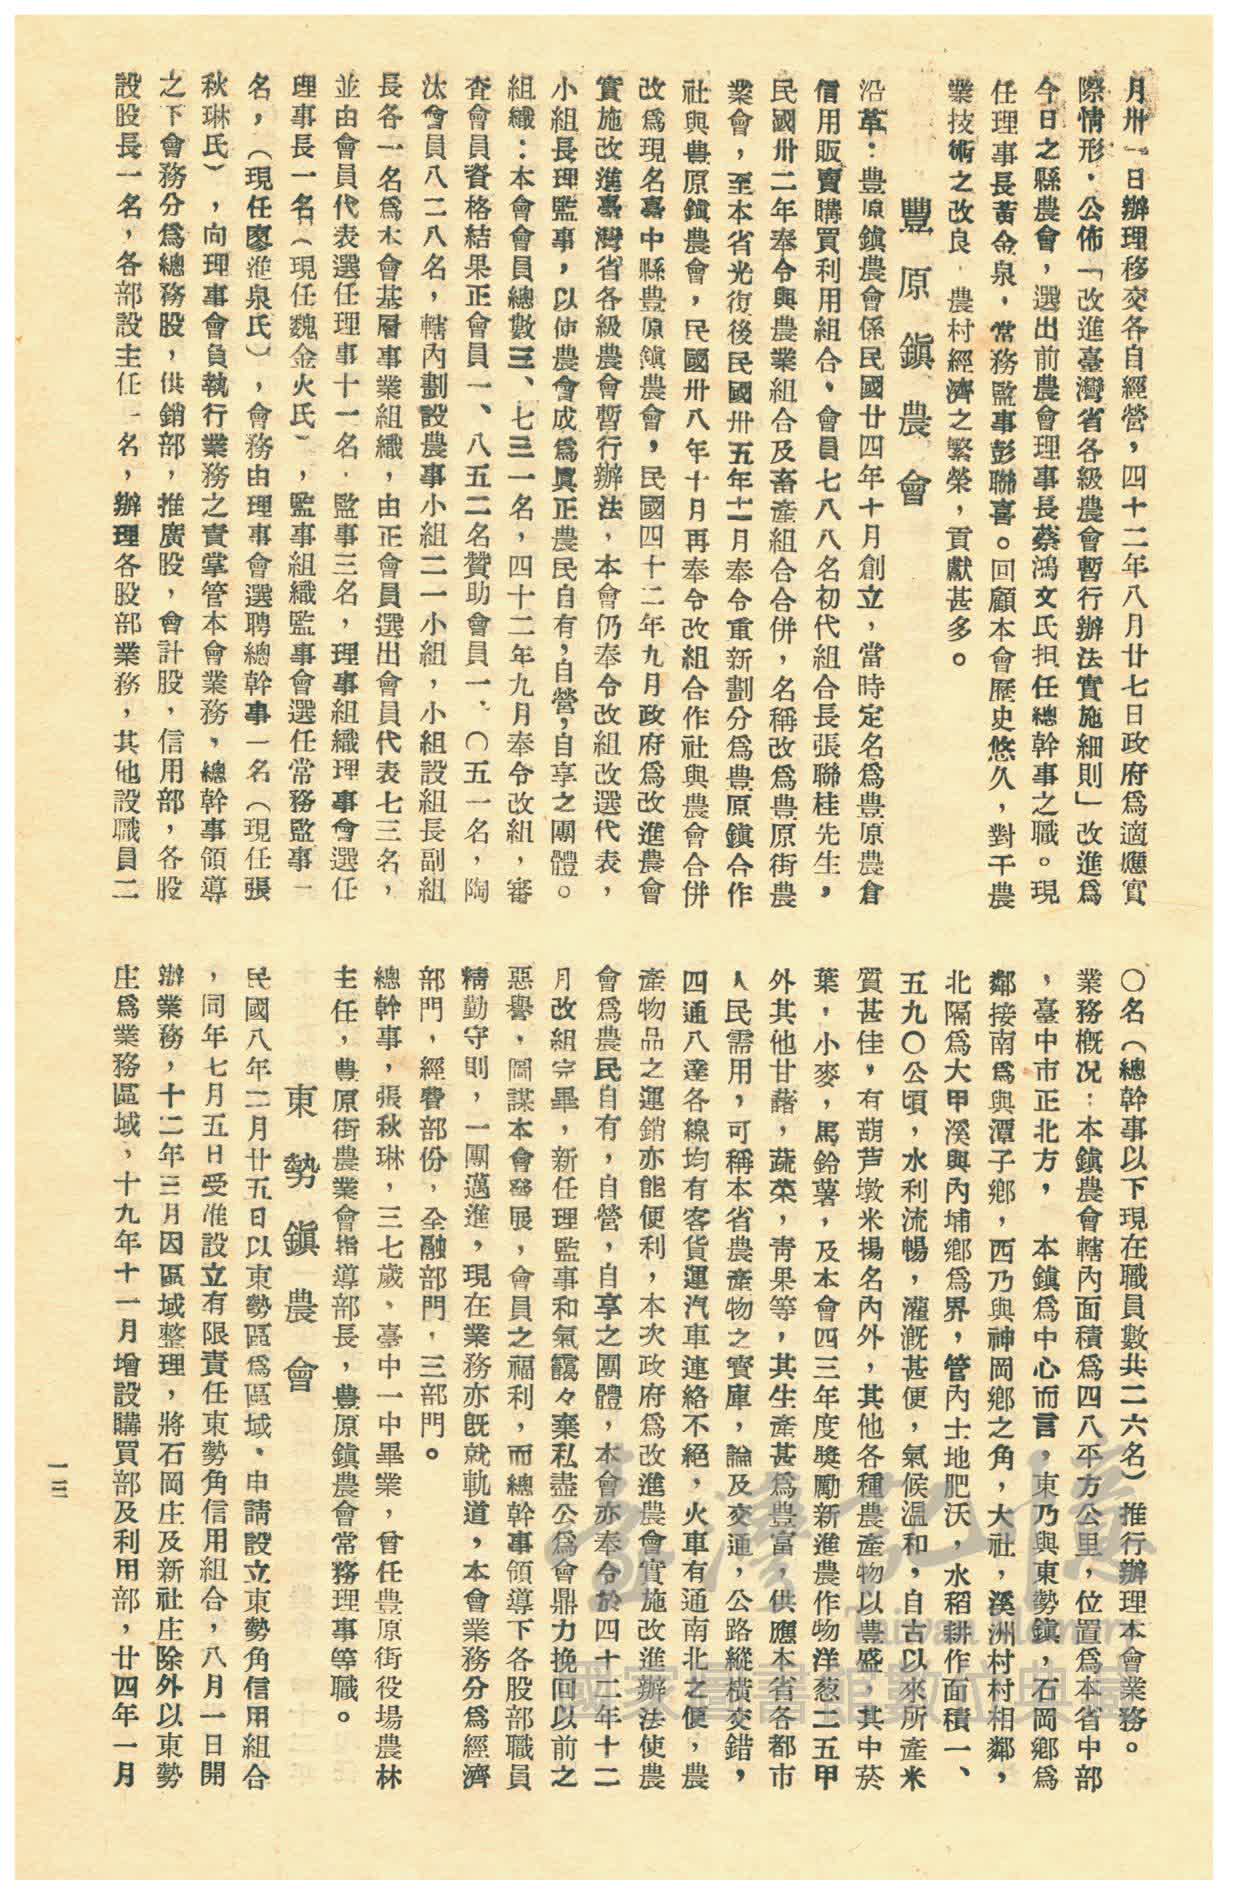 月卅一日辦理移交各自經營，四十二年八月廿七日政府為適應實
際情形，公佈「改進臺灣省各級農會暫行辦法實施細則」改進為
今日之縣農會，選出前農會理事長蔡鴻文氏担任總幹事之職。現
任理事長黃金泉，常務監事彭聯喜。回顧本會歷史悠久，對于農
業技術之改良，農村經濟之繁榮，貢獻甚多。
豐原鎮農會
沿革：豊原鎮農會係民國廿四年十月創立，當時定名為豊原農倉
信用販賣購買利用組合，會員七八八名初代組合長張聯桂先生，
民國卅二年奉令與農業組合及畜產組合合併，名稱改為豊原街農
業會，至本省光復後民國卅五年十一月奉令重新劃分為豊原鎮合作
社與豊原鎮農會，民國卅八年十月再奉令改組合作社與農會合併
改為現名臺中縣豊原鎮農會，民國四十二年九月政府為改進農會
實施改進臺灣省各級農會暫行辦法，本會仍奉令改組改選代表，
小組長理監事，以使農會成為眞正農民自有，自營，自享之團體。
組織：本會會員總數三、七三一名，四十二年九月奉令改組，審
查會員資格結果正會員一、八五二名贊助會員一、〇五一名，陶
汰會員八二八名，轄內劃設農事小組二一小組，小組設組長副組
長各一名為本會基層事業組織，由正會員選出會員代表七三名，
並由會員代表選任理事十一名，監事三名，理事組織理事會選任
理事長一名（現任魏金火氏），監事組織監事會選任常務監事一
名，（現任廖進泉氏），會務由理事會選聘總幹事一名（現任張
秋琳氏），向理事會負執行業務之責掌管本會業務，總幹事領導
之下會務分為總務股，供銷部，推廣股，會計股，信用部，各股
設股長一名，各部設主任一名，辦理各股部業務，其他設職員二
〇名（總幹事以下現在職員數共二六名）推行辦理本會業務。
業務概況：本鎮農會轄內面積為四八平方公里，位置為本省中部
，臺中市正北方，本鎮為中心而言，東乃與東勢鎮，石岡鄉為
鄰接南為與潭子鄉，西乃與神岡鄉之角，大社，溪洲村村相鄰，
北隔為大甲溪與內埔鄉為界，管內士地肥沃，水稻耕作面積一、
五九〇公頃，水利流暢，灌漑甚便，氣候溫和，自古以來所產米
質甚佳，有葫芦墩米揚名內外，其他各種農產物以豊盛，其中菸
葉，小麥，馬鈴薯，及本會四三年度獎勵新進農作物洋葱二五甲
外其他甘藷，蔬菜，靑果等，其生產甚為豊富，供應本省各都市
人民需用，可稱本省農產物之寶庫，論及交通，公路縱橫交錯，
四通八達各線均有客貨運汽車連絡不絕，火車有通南北之便，農
產物品之運銷亦能便利，本次政府為改進農會實施改進辦法使農
會為農民自有，自營，自享之團體，本會亦奉令於四十二年十二
月改組完畢，新任理監事和氣靄々棄私盡公為會鼎力挽回以前之
惡譽，圖謀本會發展，會員之福利，而總幹事領導下各股部職員
精勤守則，一團邁進，現在業務亦旣就軌道，本會業務分為經濟
部門，經費部份，金融部門，三部門。
總幹事，張秋琳，三七歲，臺中一中畢業，曾任豊原街役場農林
主任，豊原街農業會指導部長，豊原鎮農會常務理事等職。
東勢鎮農會
民國八年二月廿五日以東勢區為區域，申請設立東勢角信用組合
，同年七月五日受准設立有限責任東勢角信用組合，八月一日開
辦業務，十二年三月因區域整理，將石岡庄及新社庄除外以東勢
庄為業務區域，十九年十一月增設購買部及利用部，廿四年一月
一三
臺灣記憶
Taiwan Memory
國家圖書館數位典藏